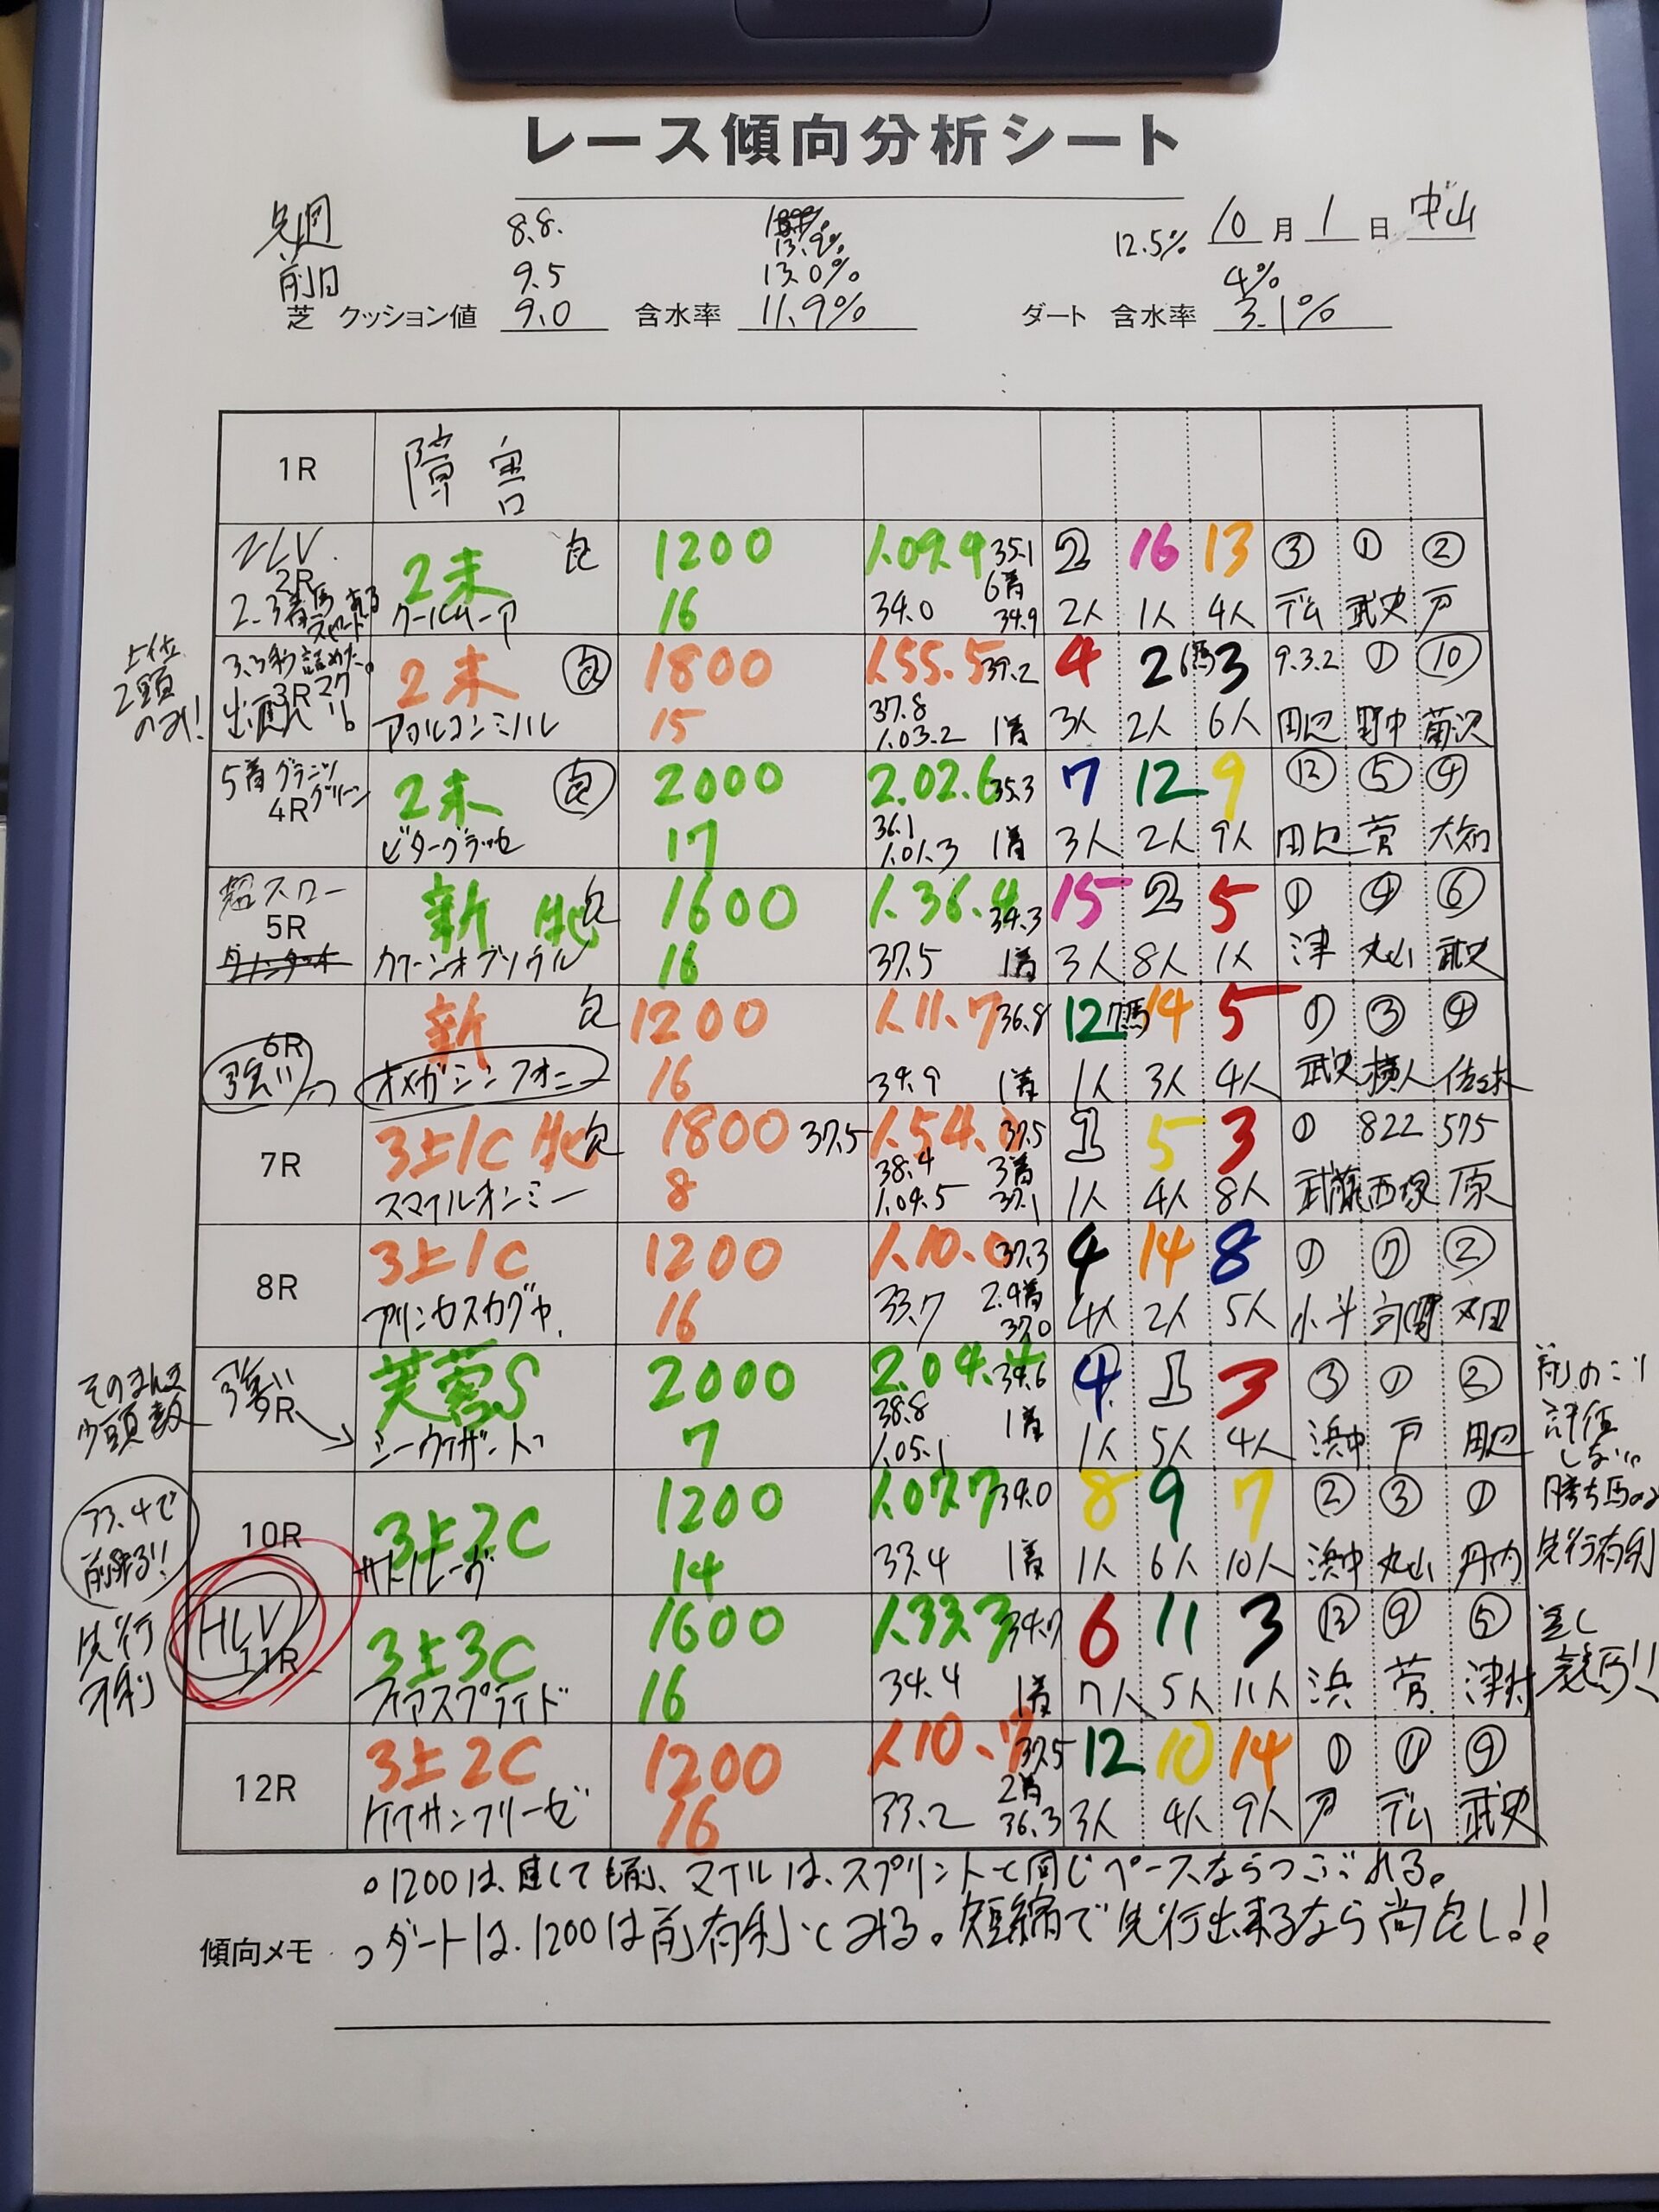 レース傾向分析シート
先週 8.8. 13.9% 12.5% 10月1日 中山
前日 9.5 13.0% 4%
芝 クッション値 9.0 含水率 11.9% ダート 含水率 3.1%
1R 障害
2LV.
2R 2未 1200 1.09.9 35.1 2 16 13 ③ ① ②
6着
クールムーア 16 34.0 34.9 2人 1人 4人 デム 武史 戸
上位
2頭
のみ!
3.3秒詰めた。
3R 2未 1800 1.55.5 39.2 4 2 3 9.3.2 ① ⑩
アルコンミハル 15 37.8
1.03.2 1着 3人 2人 6人 田辺 野中 菊沢
5着グラニット
4R グリーン 2未 2000 2.02.6 35.3 7 12 9 ⑫ ⑤ ④
ビターグラッセ 17 36.1
1.01.3 1着 3人 2人 9人 田辺 菅 大知
超スロー
5R 新 牝 1600 1.36.4 34.3 15 2 5 ① ④ ⑥
カーンオブソウル 16 37.5 1着 3人 8人 1人 津 丸山 武史
6R 新 1200 1.11.7 36.8 12 14 5 ① ③ ④
強いっ オメガシンフォニー 16 34.9 1着 1人 3人 4人 武史 横人 佐々木
7R 3上1C 牝 1800 37.5 1.54.0 37.5 1 5 3 ① 822 575
スマイルオンミー 8 38.4 3着
1.04.5 37.1 1人 4人 8人 武藤 西塚 原
8R 3上1C 1200 1.10.0 37.3 4 14 8 ① ⑦ ②
プリンセスカグヤ. 16 33.7 2.4着
37.0 4人 2人 5人 小斗
そのまんま
少頭数
強い
9R 芙蓉S 2000 2.04.4 34.6 4 1 3 ③ ① ②
シーウィザードっ 7 38.8
1.05.1 1着 1人 5人 4人 浜中 戸 田辺
前のこり
評価
しない。
33.4で
前残り!
10R 3上2C 1200 1.07.7 34.0 8 9 7 ② ③ ①
サトノレーヴ 14 33.4 1着 1人 6人 10人 浜中 丸山 丹内
勝ち馬のみ
先行有利
先行
不利
HLV
11R 3上3C 1600 1.33.3 34.7 6 11 3 ⑬ ⑨ ⑤
ディアスプライド 16 34.4 1着 7人 5人 11人 浜 菅 津村
差し
競馬!!
12R 3上2C 1200 1.10.7 37.5 12 10 14 ① ⑪ ⑨
ケイサンフリーゼ 16 33.2 2着
36.3 3人 4人 9人 戸 デム 武史
傾向メモ
。1200は、速くても前、マイルは、スプリントと同じペースならつぶれる。
。ダートは、1200は前有利とみる。短縮で先行出来るなら尚良し!!。